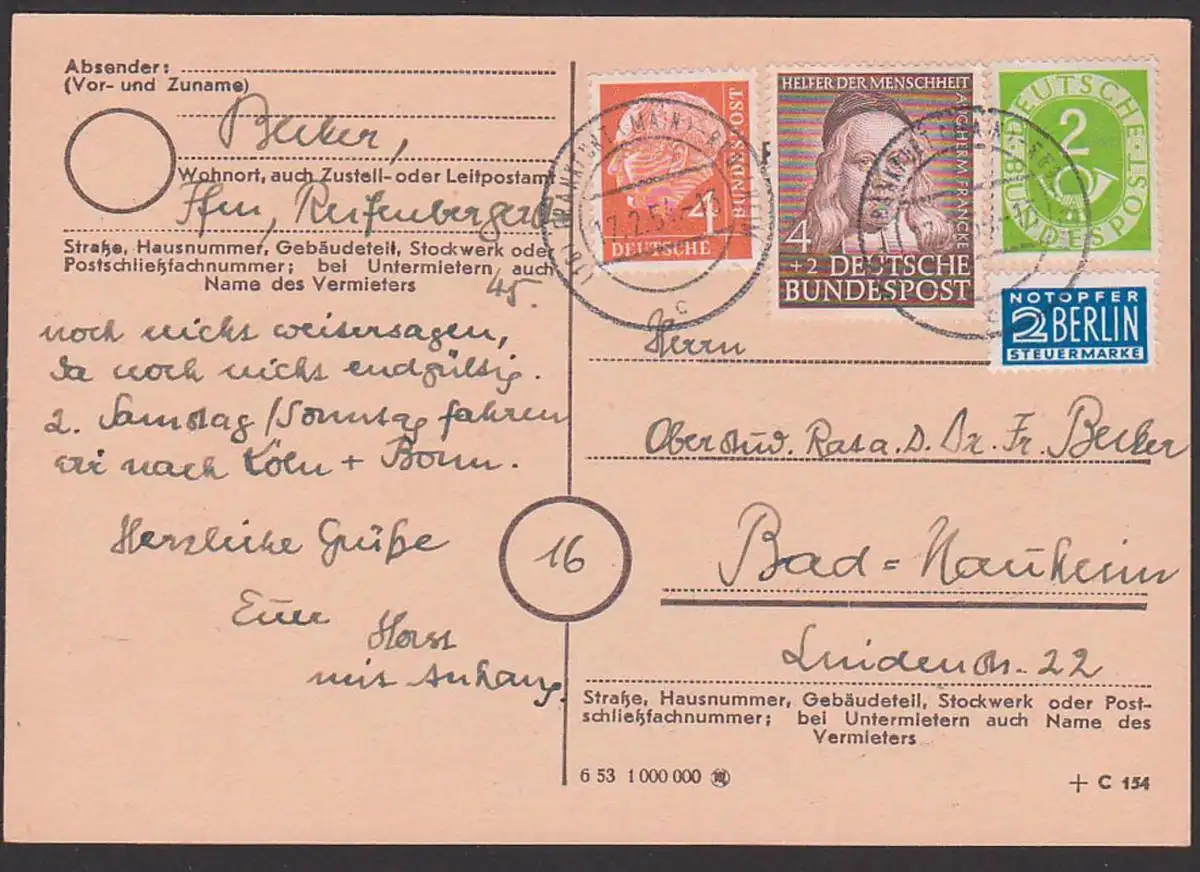 Absender:
(Vor- und Zuname)
Becker,
Wohnort, auch Zustell- oder Leitpostamt
Ffm, Reifenbergerstr
Straße, Hausnummer, Gebäudeteil, Stockwerk oder
Postschließfachnummer; bei Untermietern auch
Name des Vermieters
45.
noch nicht weitersagen,
da noch nicht endgültig.
2. Samstag/Sonntag fahren
wir nach Köln + Bonn.
Herzliche Grüße
Euer
Horst
mit Anhang.
16
BUNDESPOST
4
DEUTSCHE
HELFER DER MENSCHHEIT
A. G. HERM. FRANCKE
4
+2 DEUTSCHE
BUNDESPOST
DEUTSCHE BUNDESPOST
2
NOTOPFER
2 BERLIN
STEUERMARKE
FRANKFURT (MAIN)
c
Herrn
Oberstud. Rat a. D. Dr. Fr. Becker
Bad=Nauheim
Lindenstr. 22
Straße, Hausnummer, Gebäudeteil, Stockwerk oder Post-
schließfachnummer; bei Untermietern auch Name des
Vermieters
6 53 1 000 000
+ C 154